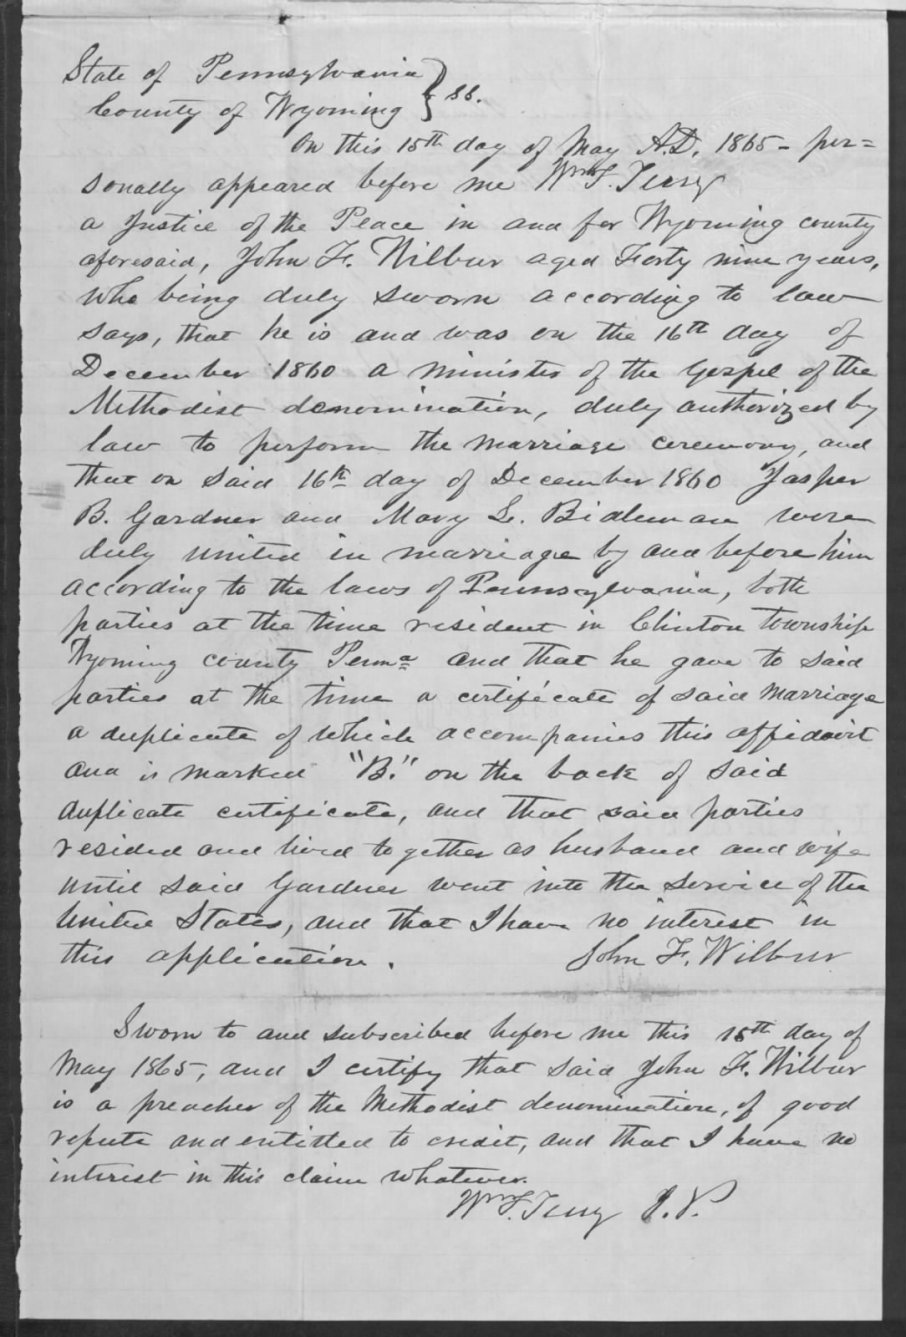 State of Pennsylvania } ss.
County of Wyoming
On this 15th day of May A.D. 1865 - per=
sonally appeared before me Wm F. Terry
a Justice of the Peace in and for Wyoming county
aforesaid, John F. Wilbur aged Forty nine years,
who being duly sworn according to law
says, that he is and was on the 16th day of
December 1860 a minister of the Gospel of the
Methodist denomination, duly authorized by
law to perform the marriage ceremony, and
that on said 16th day of December 1860 Jasper
B. Gardner and Mary L. Bidleman were
duly united in marriage by and before him
according to the laws of Pennsylvania, both
parties at the time resident in Clinton township
Wyoming county Penna and that he gave to said
parties at the time a certificate of said marriage
a duplicate of which accompanies this affidavit
and is marked "B." on the back of said
duplicate certificate, and that said parties
resided and lived together as husband and wife
until said Gardner went into the service of the
United States, and that I have no interest in
this application. John F. Wilbur
Sworn to and subscribed before me this 15th day of
May 1865, and I certify that said John F. Wilbur
is a preacher of the Methodist denomination, of good
repute and entitled to credit, and that I have no
interest in this claim whatever.
Wm F. Terry J.P.